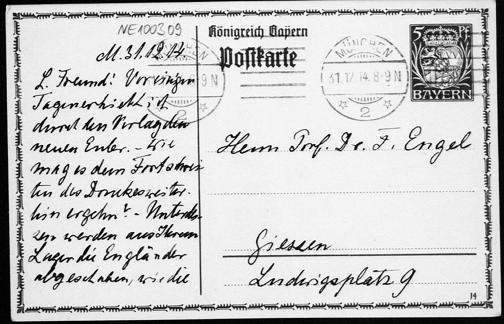 NE100309
Königreich Bayern
Postkarte
5
BAYERN
MÜNCHEN
31.12.14.8-9N
2
9 N
2
M. 31.12.14
L. Freund! Vor einigen
Tagen erhielt ich
durch den Verlag den
neuen Euler. – Wie
mag es dem Fortschrei-
ten des Druckes weiter-
hin ergehn? – Unterdes-
sen werden aus Ihrem
Lager die Engländer
abgeschoben, wie die
Herrn Prof. Dr. F. Engel
Giessen
Ludwigsplatz 9
14